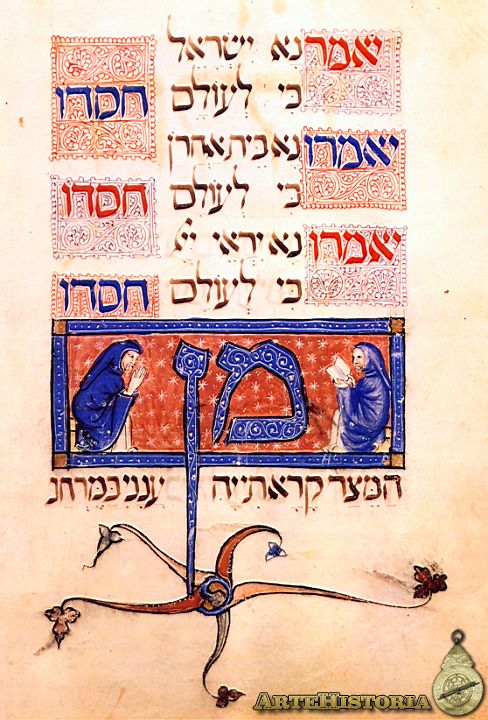 יאמר נא ישראל
כי לעולם חסדו
יאמרו נא בית אהרן
כי לעולם חסדו
יאמרו נא יראי יי
כי לעולם חסדו
מן
המצר קראתי יה ענני במרחב
ARTEHISTORIA